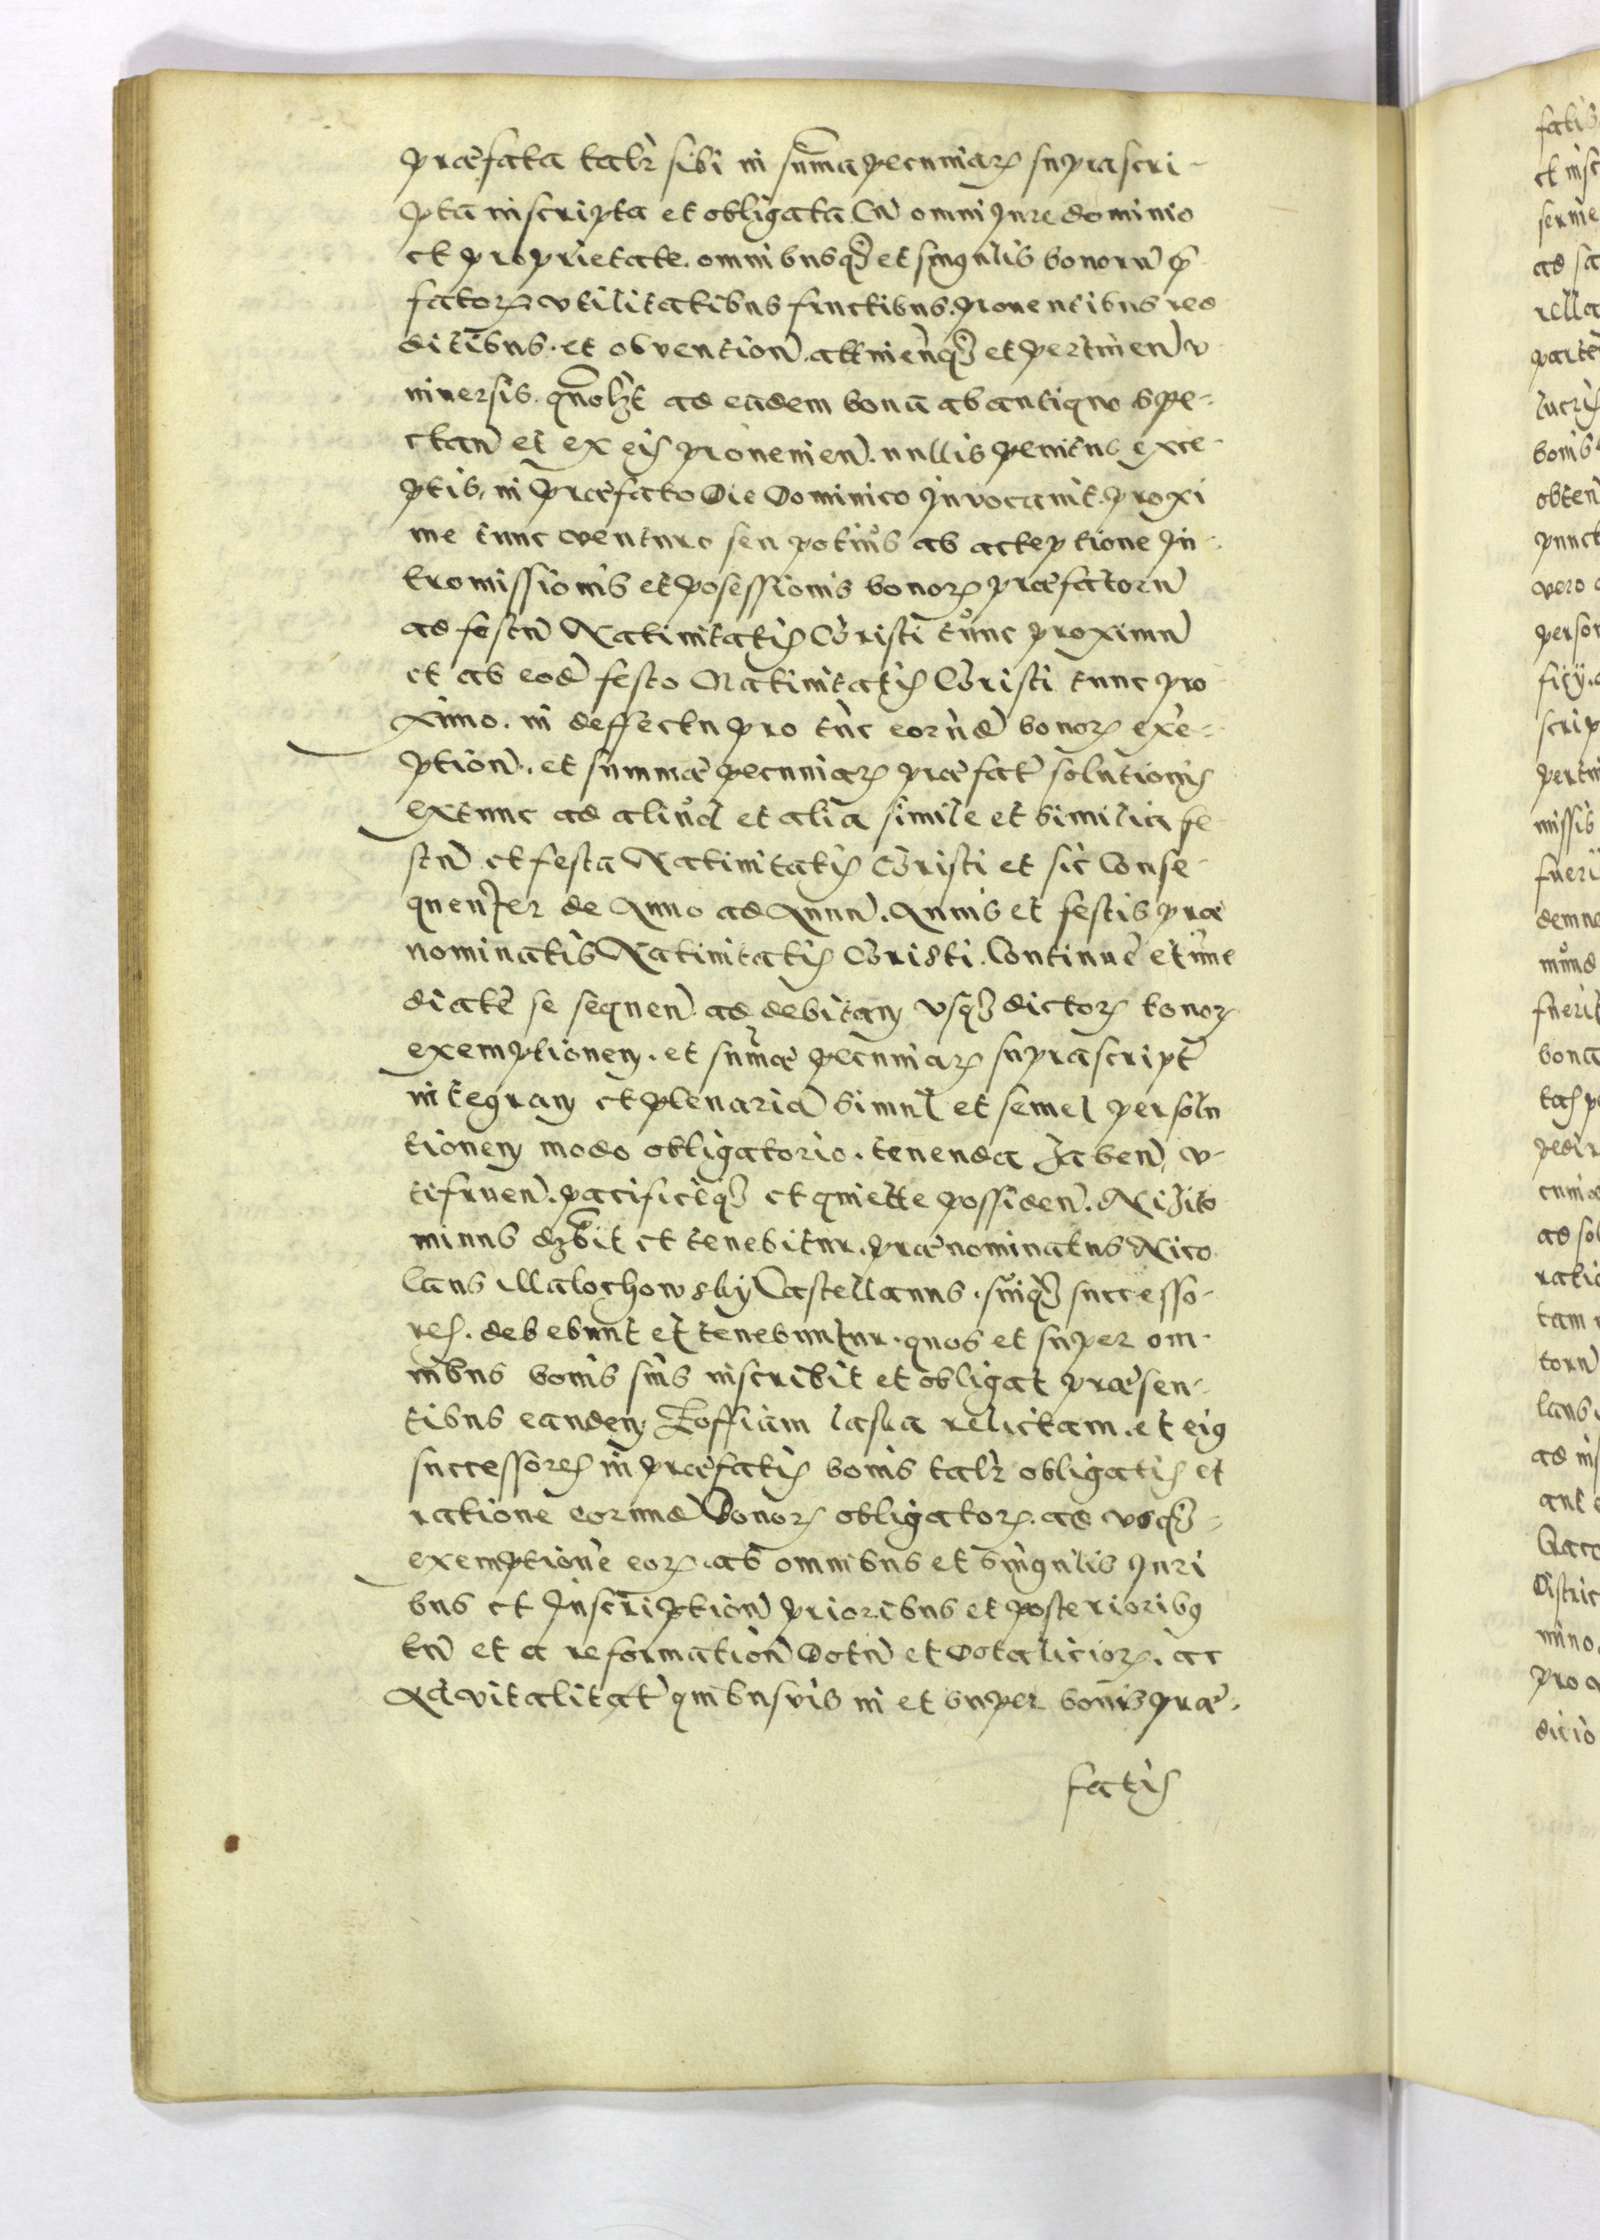 præfata talr sibi in sūma pecuniarꝫ suprascri-
pta inscripta et obligata. Cū omni Jure dominio
et proprietate. omnibusqꝫ et singulis bonorū p̄
fatorꝫ vtilitatibus fructibus. prouentibus red
ditibus. et obvention̄. attinēnqꝫ et pertinen̄ v
niuersis. quolꝫt ad eadem bona ab antiquo spe-
ctan̄ et ex eis prouenien̄. nullis penitus exce-
ptis, in præfato Die Dominico Inuocauit. proxi
me tunc venturo seu potius ab acceptione In-
tromissionis et posessionis bonorꝫ præfatorū
ad festū Natiuitatis Christi tunc proximū
et ab eod̄ festo Natiuitatis Christi tunc pro
ximo. in deffectu pro tūc eorūd̄ bonorꝫ exe-
ption̄. et summæ pecuniarꝫ præfat̄ solutionis
extunc ad aliud et alia simile et similia fe-
stū et festa Natiuitatis Christi et sic Conse-
quenter de Anno ad Annū. Annis et festis præ
nominatis Natiuitatis Christi. Continue et īme
diate se sequen̄. ad debitam vsqꝫ dictorꝫ bonorꝫ
exemptionem. et sum̄æ pecuniarꝫ suprascript̄
integram et plenariā simul et semel persolu
tionem modo obligatorio. tenenda haben̄ v-
tifruen̄. pacificeqꝫ et quiette possiden̄. Nihilo
minus dꝫbit et tenebitur. prænominatus Nico
laus Malochowsky Castellanus. suiqꝫ successo-
res. debebunt et tenebuntur. quos et super om-
nibus bonis suis inscribit et obligat præsen-
tibus eandem Zoffiam laska relictam. et eiꝰ
successores in præfatis bonis talr obligatis et
ratione eorund̄ Bonorꝫ obligatorꝫ. ad vsqꝫ-
exemptionē eorꝫ. ab omnibus et singulis Juri
bus et Inscription̄ prioribus et posterioribꝰ
tū et a reformation̄ Dotū et Dotaliciorꝫ. ac
Advitalitat̄ quibusvis in et super bonis præ-
fatis